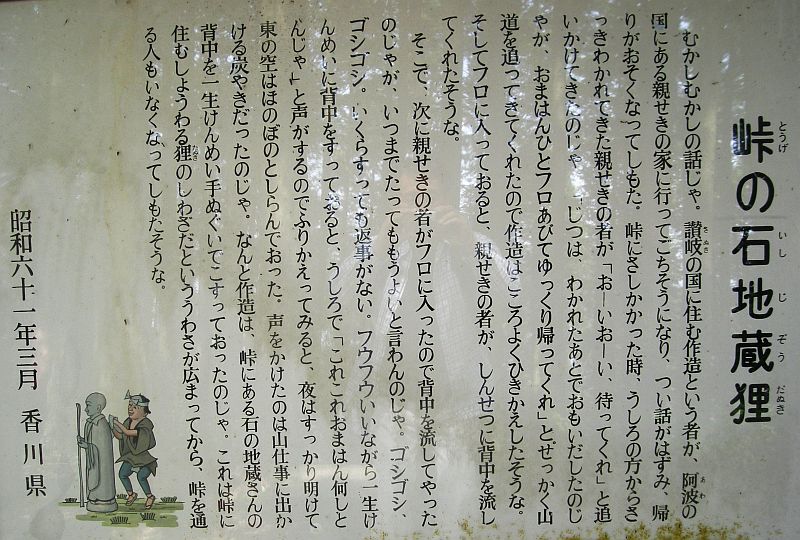 峠の石地蔵狸
とうげ いし じ ぞう だぬき
むかしむかしの話じゃ。讃岐の国に住む作造という者が、阿波の
さぬき あわ
国にある親せきの家に行ってごちそうになり、つい話がはずみ、帰
りがおそくなってしもた。峠にさしかかった時、うしろの方からさ
っきわかれてきた親せきの者が「おーいおーい、待ってくれ」と追
いかけてきたのじゃ。「じつは、わかれたあとでおもいだしたのじ
ゃが、おまはんひとフロあびてゆっくり帰ってくれ」とせっかく山
道を追ってきてくれたので作造はこころよくひきかえしたそうな。
そしてフロに入っておると、親せきの者が、しんせつに背中を流し
てくれたそうな。
そこで、次に親せきの者がフロに入ったので背中を流してやった
のじゃが、いつまでたってももうよいと言わんのじゃ。ゴシゴシ、
ゴシゴシ。いくらすっても返事がない。フウフウいいながら一生け
んめいに背中をすっておると、うしろで「これこれおまはん何しと
んじゃ」と声がするのでふりかえってみると、夜はすっかり明けて
東の空はほのぼのとしらんでおった。声をかけたのは山仕事に出か
ける炭やきだったのじゃ。なんと作造は、峠にある石の地蔵さんの
背中を一生けんめい手ぬぐいでこすっておったのじゃ。これは峠に
住むしょうわる狸のしわざだといううわさが広まってから、峠を通
たぬき
る人もいなくなってしもたそうな。
昭和六十一年三月 香川県